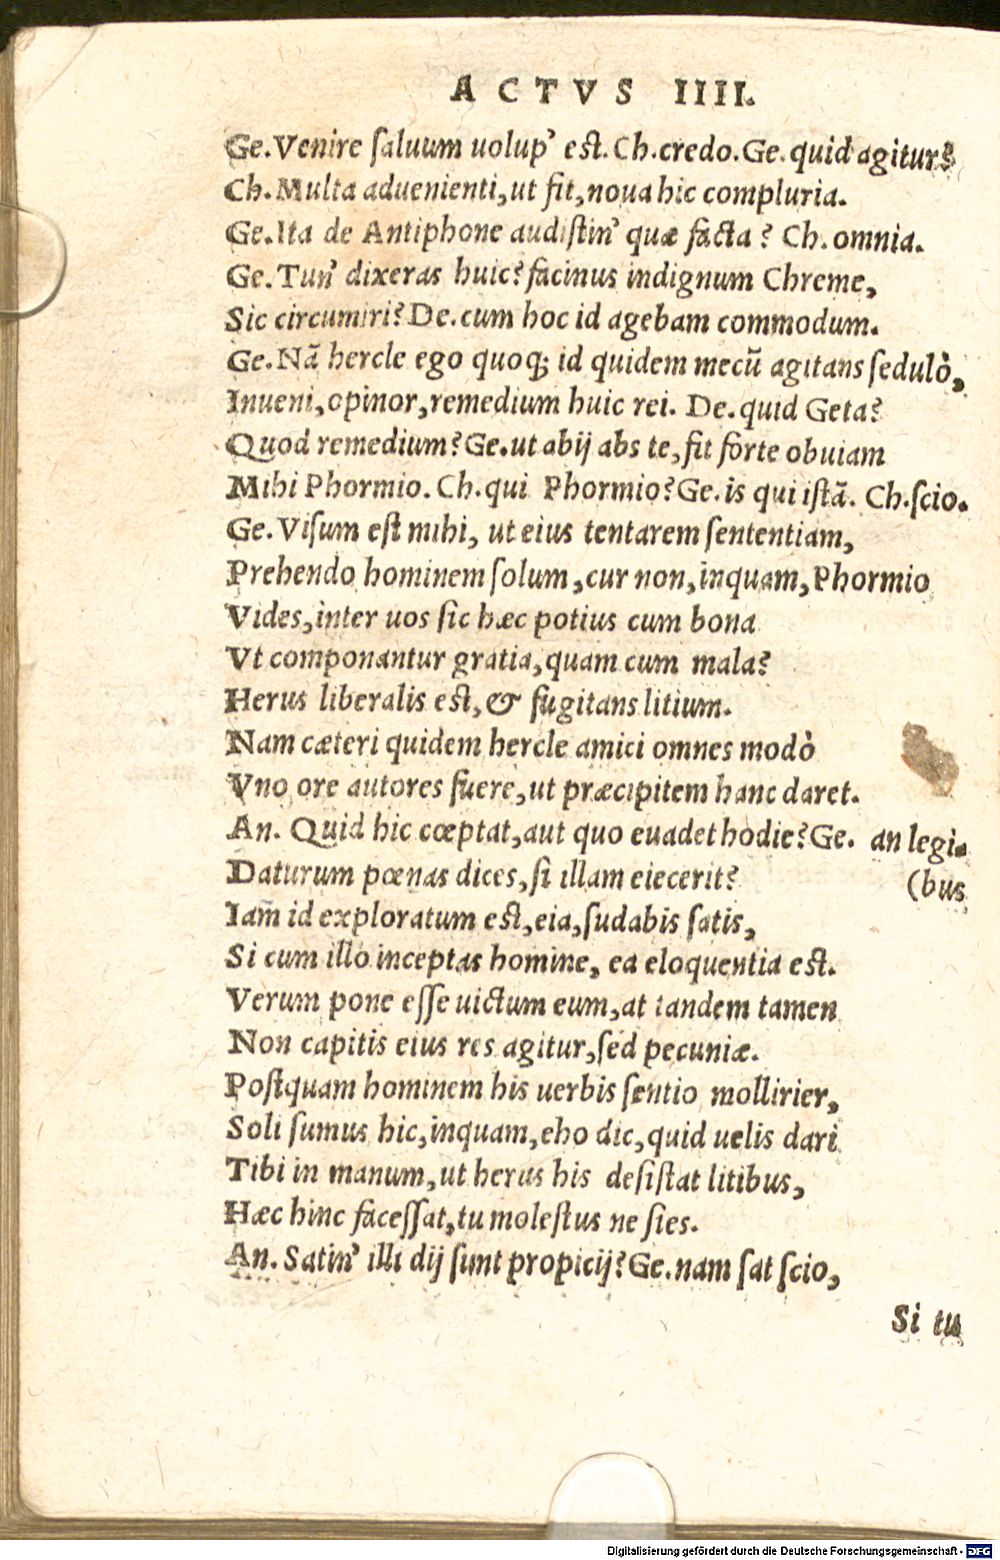 ACTVS IIII.
Ge.Venire ſaluum uolup' eſt.Ch.credo.Ge.quid agitur?
Ch.Multa aduenienti,ut fit,noua hic compluria.
Ge.Ita de Antiphone audiſtin' quæ facta? Ch.omnia.
Ge.Tun' dixeras huic? facinus indignum Chreme,
Sic circumiri? De.cum hoc id agebam commodum.
Ge.Nã hercle ego quoq; id quidem mecũ agitans ſedulò,
Inueni,opinor,remedium huic rei. De.quid Geta?
Quod remedium? Ge.ut abij abs te,fit forte obuiam
Mihi Phormio. Ch.qui Phormio? Ge.is qui iſtã. Ch.ſcio.
Ge.Viſum eſt mihi, ut eius tentarem ſententiam,
Prehendo hominem ſolum,cur non,inquam,Phormio
Vides,inter uos ſic hæc potius cum bona
Vt componantur gratia,quam cum mala?
Herus liberalis eſt,& fugitans litium.
Nam cæteri quidem hercle amici omnes modò
Vno ore autores fuere,ut præcipitem hanc daret.
An. Quid hic cœptat,aut quo euadet hodie? Ge. an legi-
Daturum pœnas dices,ſi illam eiecerit? (bus
Iam id exploratum eſt,eia,ſudabis ſatis,
Si cum illo inceptas homine, ea eloquentia eſt.
Verum pone eſſe uictum eum,at tandem tamen
Non capitis eius res agitur,ſed pecuniæ.
Poſtquam hominem his uerbis ſentio mollirier,
Soli ſumus hic,inquam,eho dic,quid uelis dari
Tibi in manum,ut herus his deſiſtat litibus,
Hæc hinc faceſſat,tu moleſtus ne ſies.
An. Satin' illi dij ſunt propicij? Ge.nam ſat ſcio,
Si tu
Digitalisierung gefördert durch die Deutsche Forschungsgemeinschaft - DFG